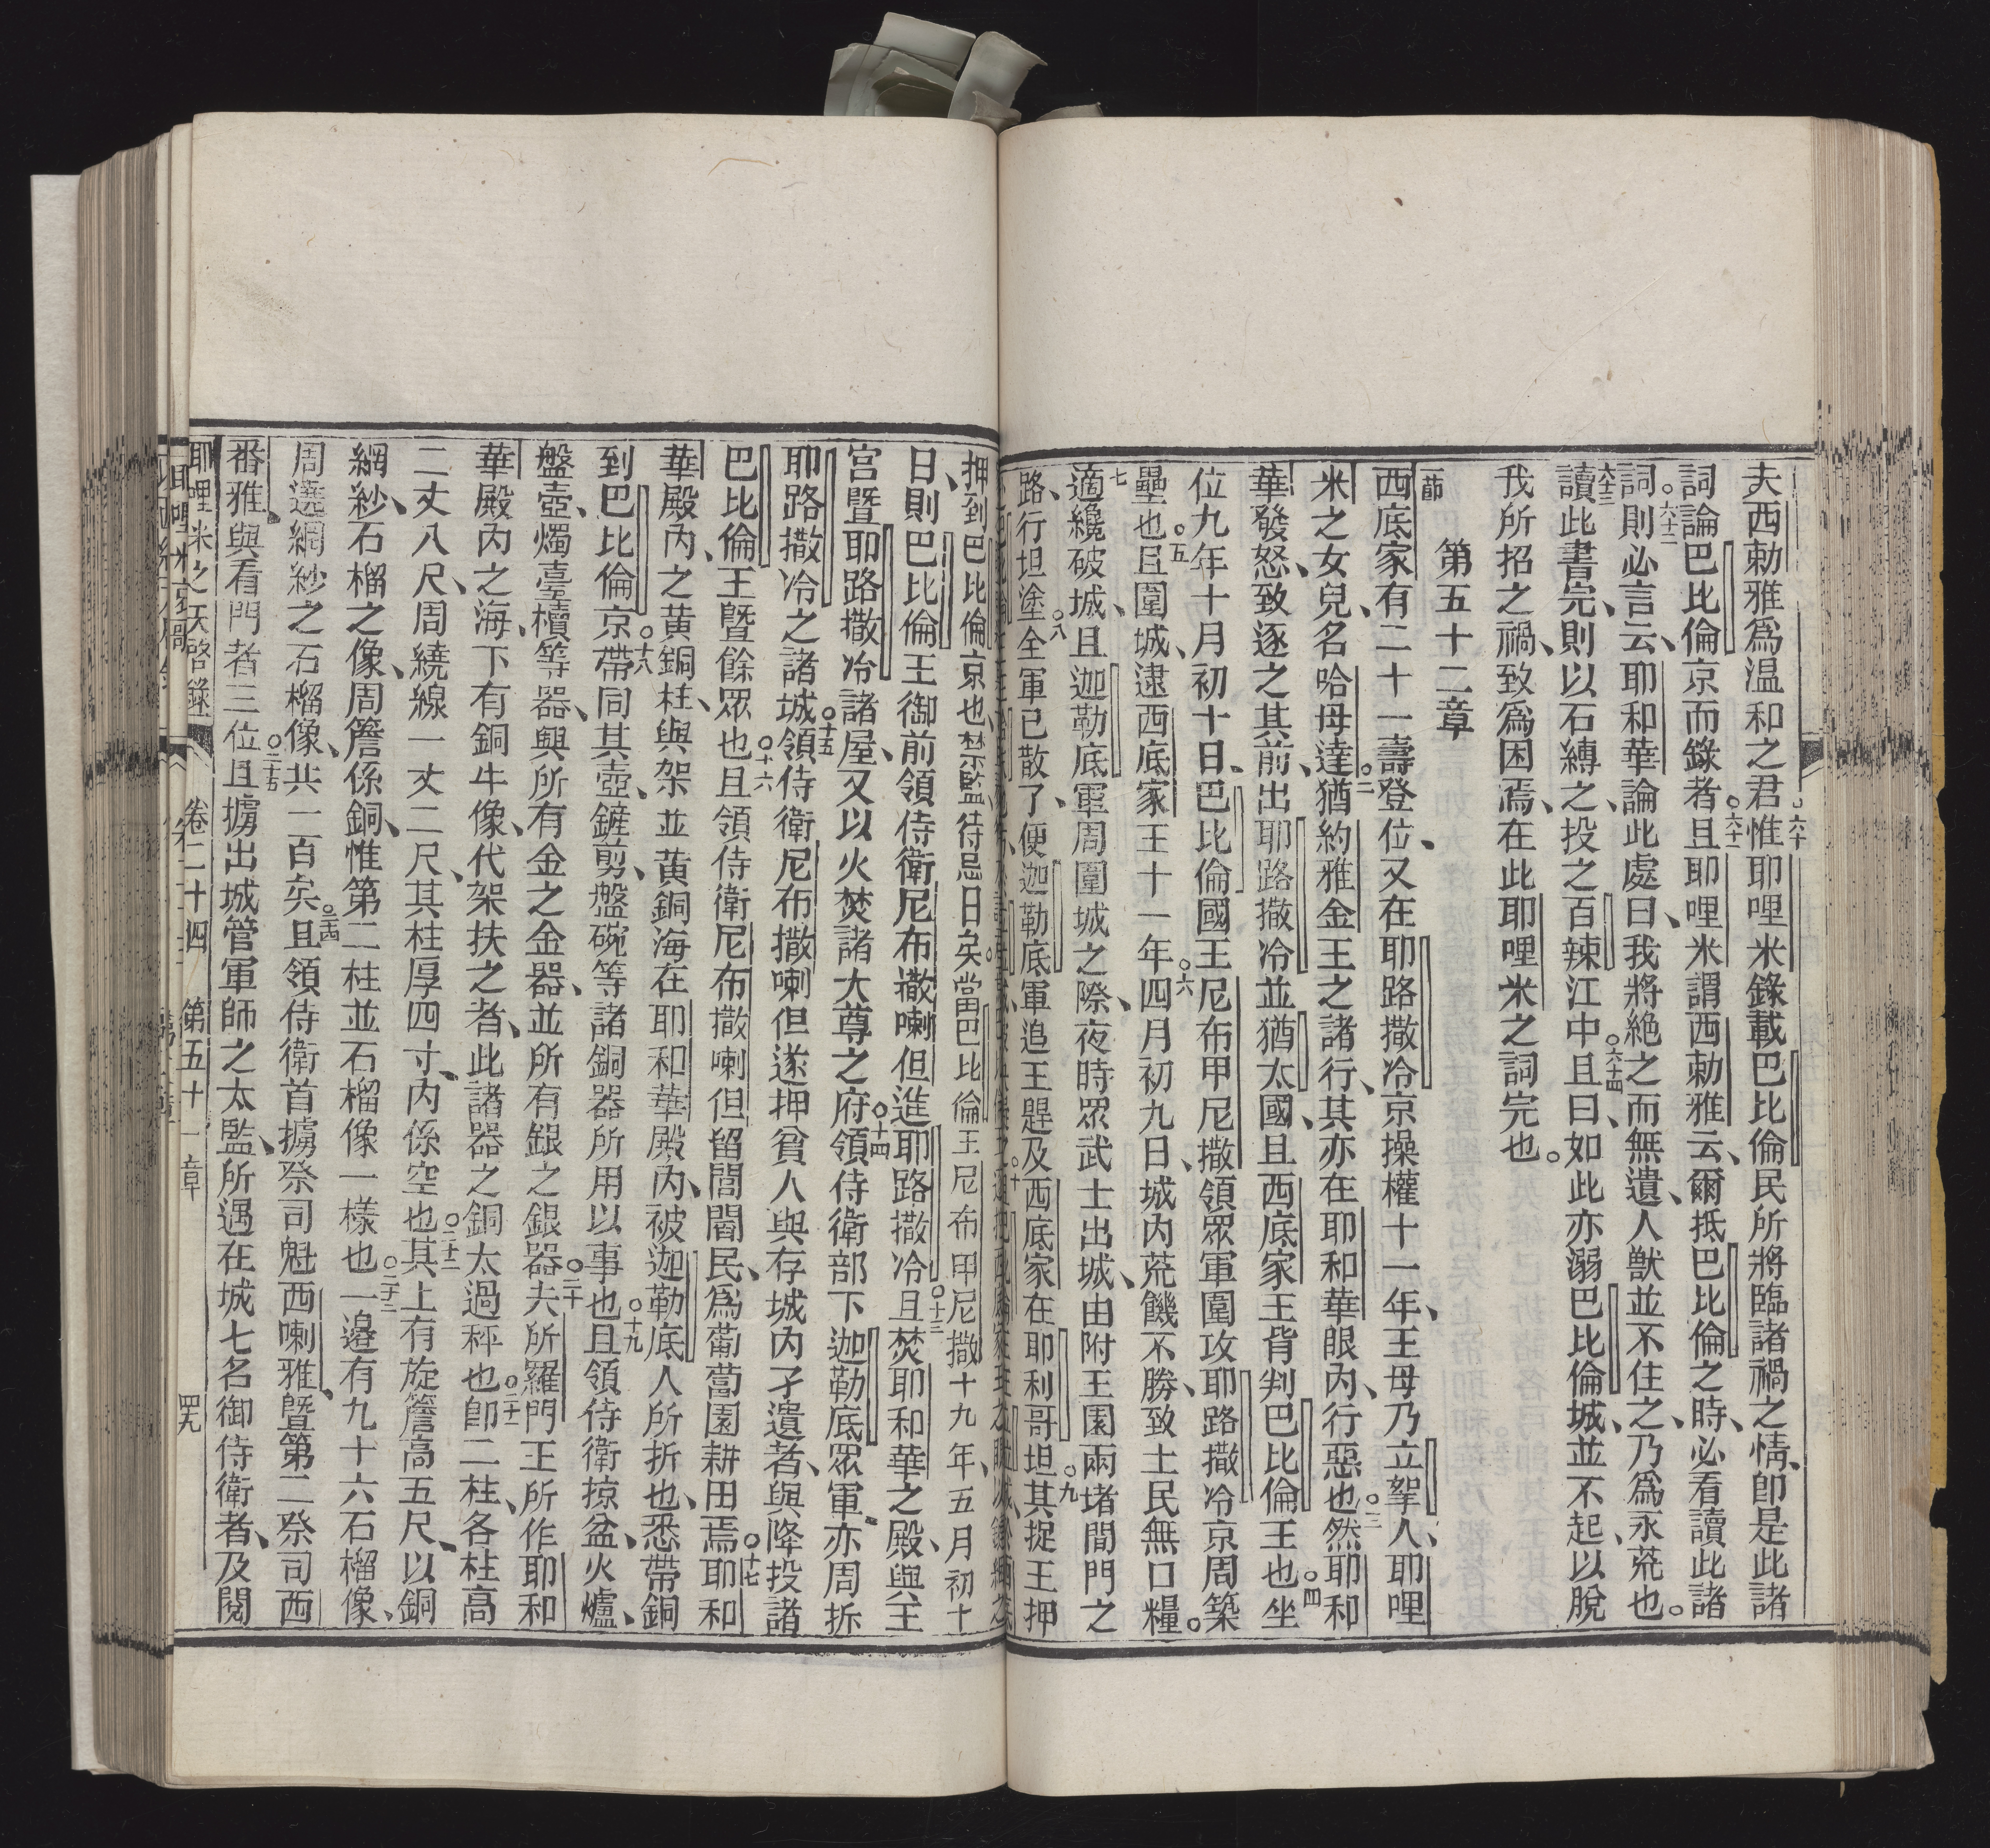 夫西勅雅爲温和之君惟耶哩米錄載巴比倫民所將臨諸禍之情、卽是此諸
詞論巴比倫京而錄者且耶哩米謂西勅雅云、爾抵巴比倫之時、必看讀此諸
詞則必言云、耶和華論此處曰、我將絶之而無遺、人獸並不住之、乃爲永荒也。
讀此書完、則以石縛之、投之百辣江中且曰、如此亦溺巴比倫城、並不起、以脫
我所招之禍、致爲困焉、在此耶哩米之詞完也。
第五十二章
西底家有二十一壽登位、又在耶路撒冷京操權十一年、王母乃立挐人、耶哩
米之女兒、名哈母達猶約雅金王之諸行、其亦在耶和華眼內、行惡也然耶和
華發怒、致逐之其前、出耶路撒冷並猶太國、且西底家王背判巴比倫王也坐
位九年十月初十日、巴比倫國王尼布甲尼撒領眾軍圍攻耶路撒冷京周築
壘也且圍城、逮西底家王十一年四月初九日、城內荒饑不勝、致土民無口糧。
適纔破城、且迦勒底軍周圍城之際、夜時眾武士出城、由附王園兩堵間門之
路、行坦塗全軍已散了、便迦勒底軍追王趕及西底家在耶利哥坦其捉王押
押到巴比倫京也、禁監、待忌日矣。當巴比倫王尼布甲尼撒十九年、五月初十
日、則巴比倫王御前領侍衛尼布撒喇但進耶路撒冷且焚耶和華之殿、與王
宮暨耶路撒冷諸屋、又以火焚諸大尊之府領侍衛部下迦勒底眾軍、亦周拆
耶路撒冷之諸城領侍衛尼布撒喇但遂押貧人與存城內孑遺者、與降投諸
巴比倫王暨餘眾也且領侍衛尼布撒喇但留閭閻民、爲葡萄園耕田焉耶和
華殿內、之黄銅柱、與架並黄銅海在耶和華殿內、被迦勒底人所折也、悉帶銅
到巴比倫京帶同其壺、鏟剪、盤碗等諸銅器所用以事也且領侍衛掠盆、火爐、
盤壺、燭臺櫝等器、與所有金之金器、並所有銀之銀器夫所羅門王所作耶和
華殿內之海、下有銅牛像、代架扶之者、此諸器之銅太過秤也卽二柱、各柱高
二丈八尺、周繞線一丈二尺、其柱厚四寸、內係空也其上有旋簷高五尺、以銅
網紗、石榴之像、周簷係銅、惟第二柱並石榴像一樣也一邉有九十六石榴像、
周遶網紗之石榴像、共一百矣且領侍衛首擄祭司魁西喇雅、暨第二祭司西
番雅、與看門者三位且擄出城管軍師之太監、所遇在城七名御侍衛者、及閱
耶哩米之天啓錄 卷二十四 第五十一章 四九